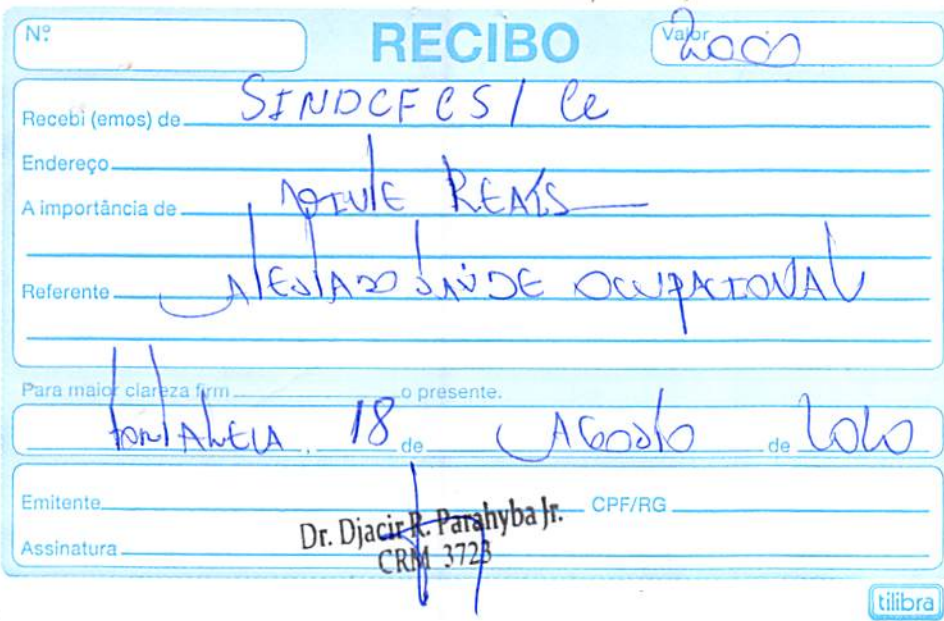 Nº RECIBO Valor 2000
Recebi (emos) de SINDCFCS / Ce
Endereço
A importância de Vinte REAIS
Referente Atestado SAÚDE OCUPACIONAL
Para maior clareza firm o presente.
Fortaleza, 18 de Agosto de 2020
Emitente CPF/RG
Dr. Djacir R. Parahyba Jr.
Assinatura CRM 3723
tilibra